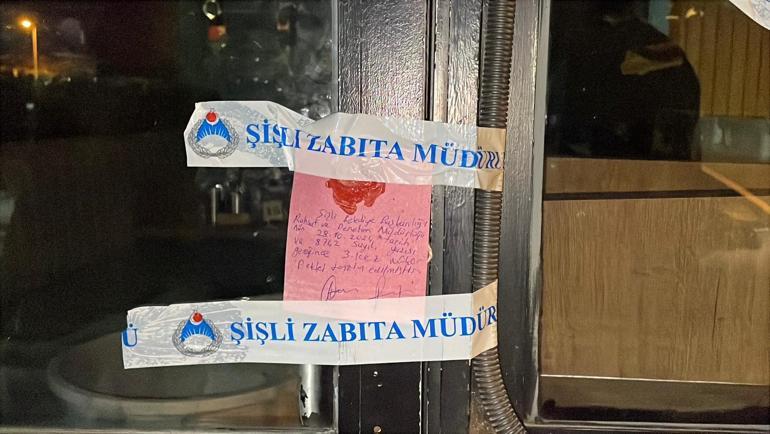 ŞİŞLİ ZABITA MÜDÜRL
Şişli Belediye Başkanlığı
Ruhsat ve Denetim Müdürlüğü
nün 28.10.2021 tarih
ve 8742 sayılı yazısı
gereğince 3. kez mühür
Ü ŞİŞLİ ZABITA MÜDÜR